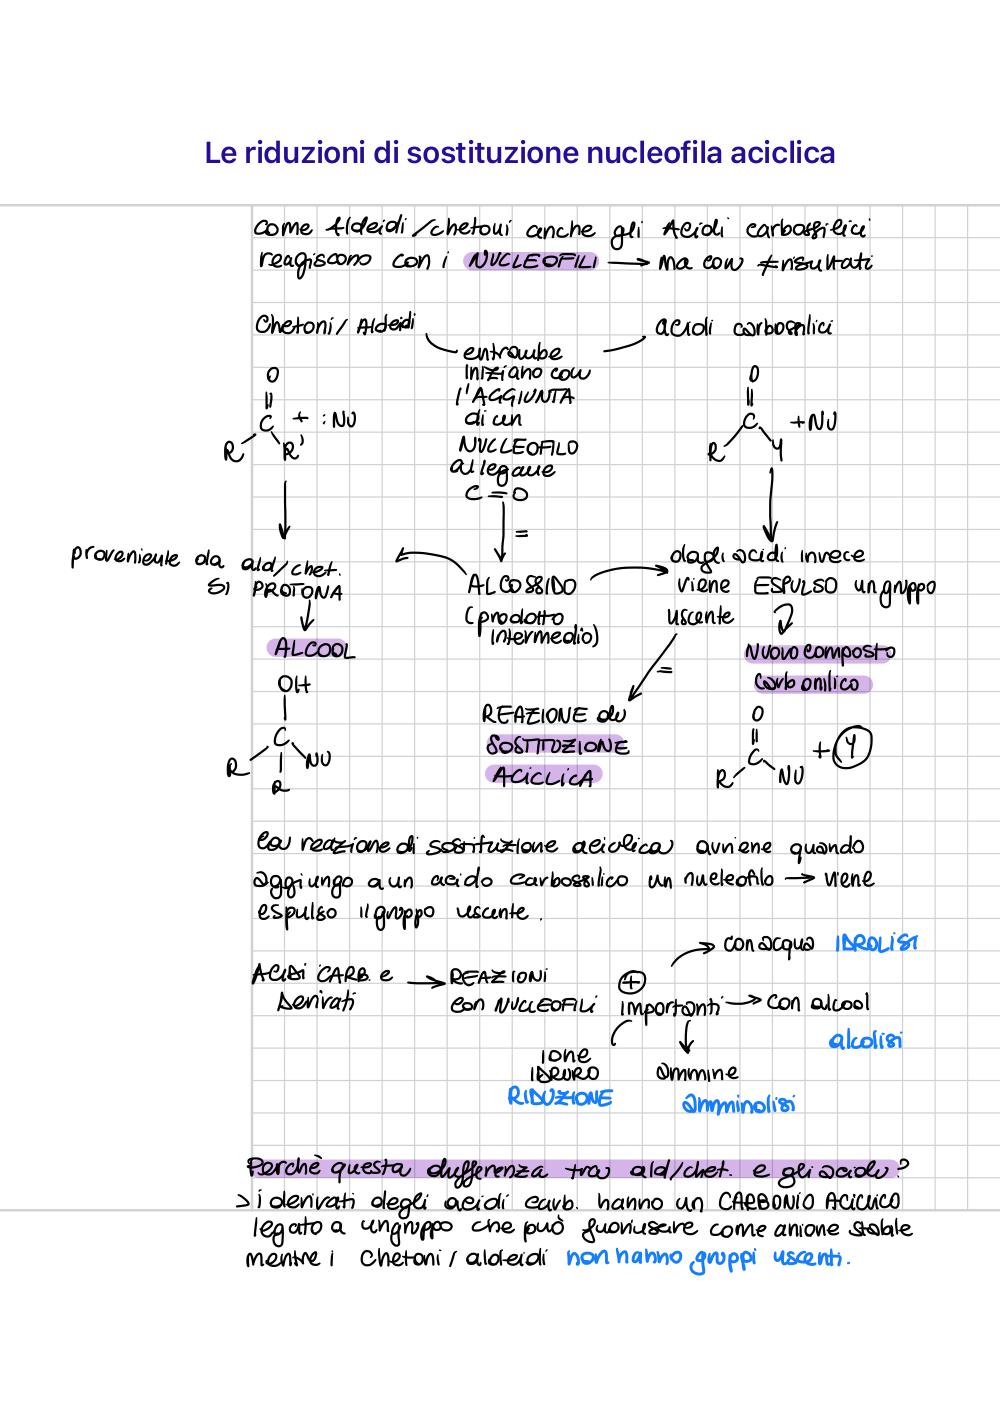 Le riduzioni di sostituzione nucleofila aciclica
come Aldeidi/chetoni anche gli Acidi carbossilici
reagiscono con i NUCLEOFILI → ma con ≠ risultati
Chetoni/Aldeidi
acidi carbossilici
entrambe
INIZIANO con
l'AGGIUNTA
di un
NUCLEOFILO
al legame
C=O
O
||
C + :NU
R R'
O
||
C +NU
R Y
proveniente da ald/chet.
SI PROTONA
ALCOOL
=
ALCOSSIDO
(prodotto
intermedio)
dagli acidi invece
viene ESPULSO un gruppo
uscente
Nuovo composto
carbonilico
=
OH
C
R NU
R
REAZIONE di
SOSTITUZIONE
ACICLICA
O
||
C + Y
R NU
la reazione di sostituzione aciclica avviene quando
aggiungo a un acido carbossilico un nucleofilo → viene
espulso il gruppo uscente.
ACIDI CARB. e
Derivati
→ REAZIONI
con NUCLEOFILI
+
importanti
→ con acqua IDROLISI
→ con alcool
alcolisi
ione
IDRURO
RIDUZIONE
ammine
amminolisi
Perchè questa differenza tra ald/chet. e gli acidi?
> i derivati degli acidi carb. hanno un CARBONIO ACICLICO
legato a un gruppo che può fuoriuscire come anione stabile
mentre i chetoni/aldeidi non hanno gruppi uscenti.